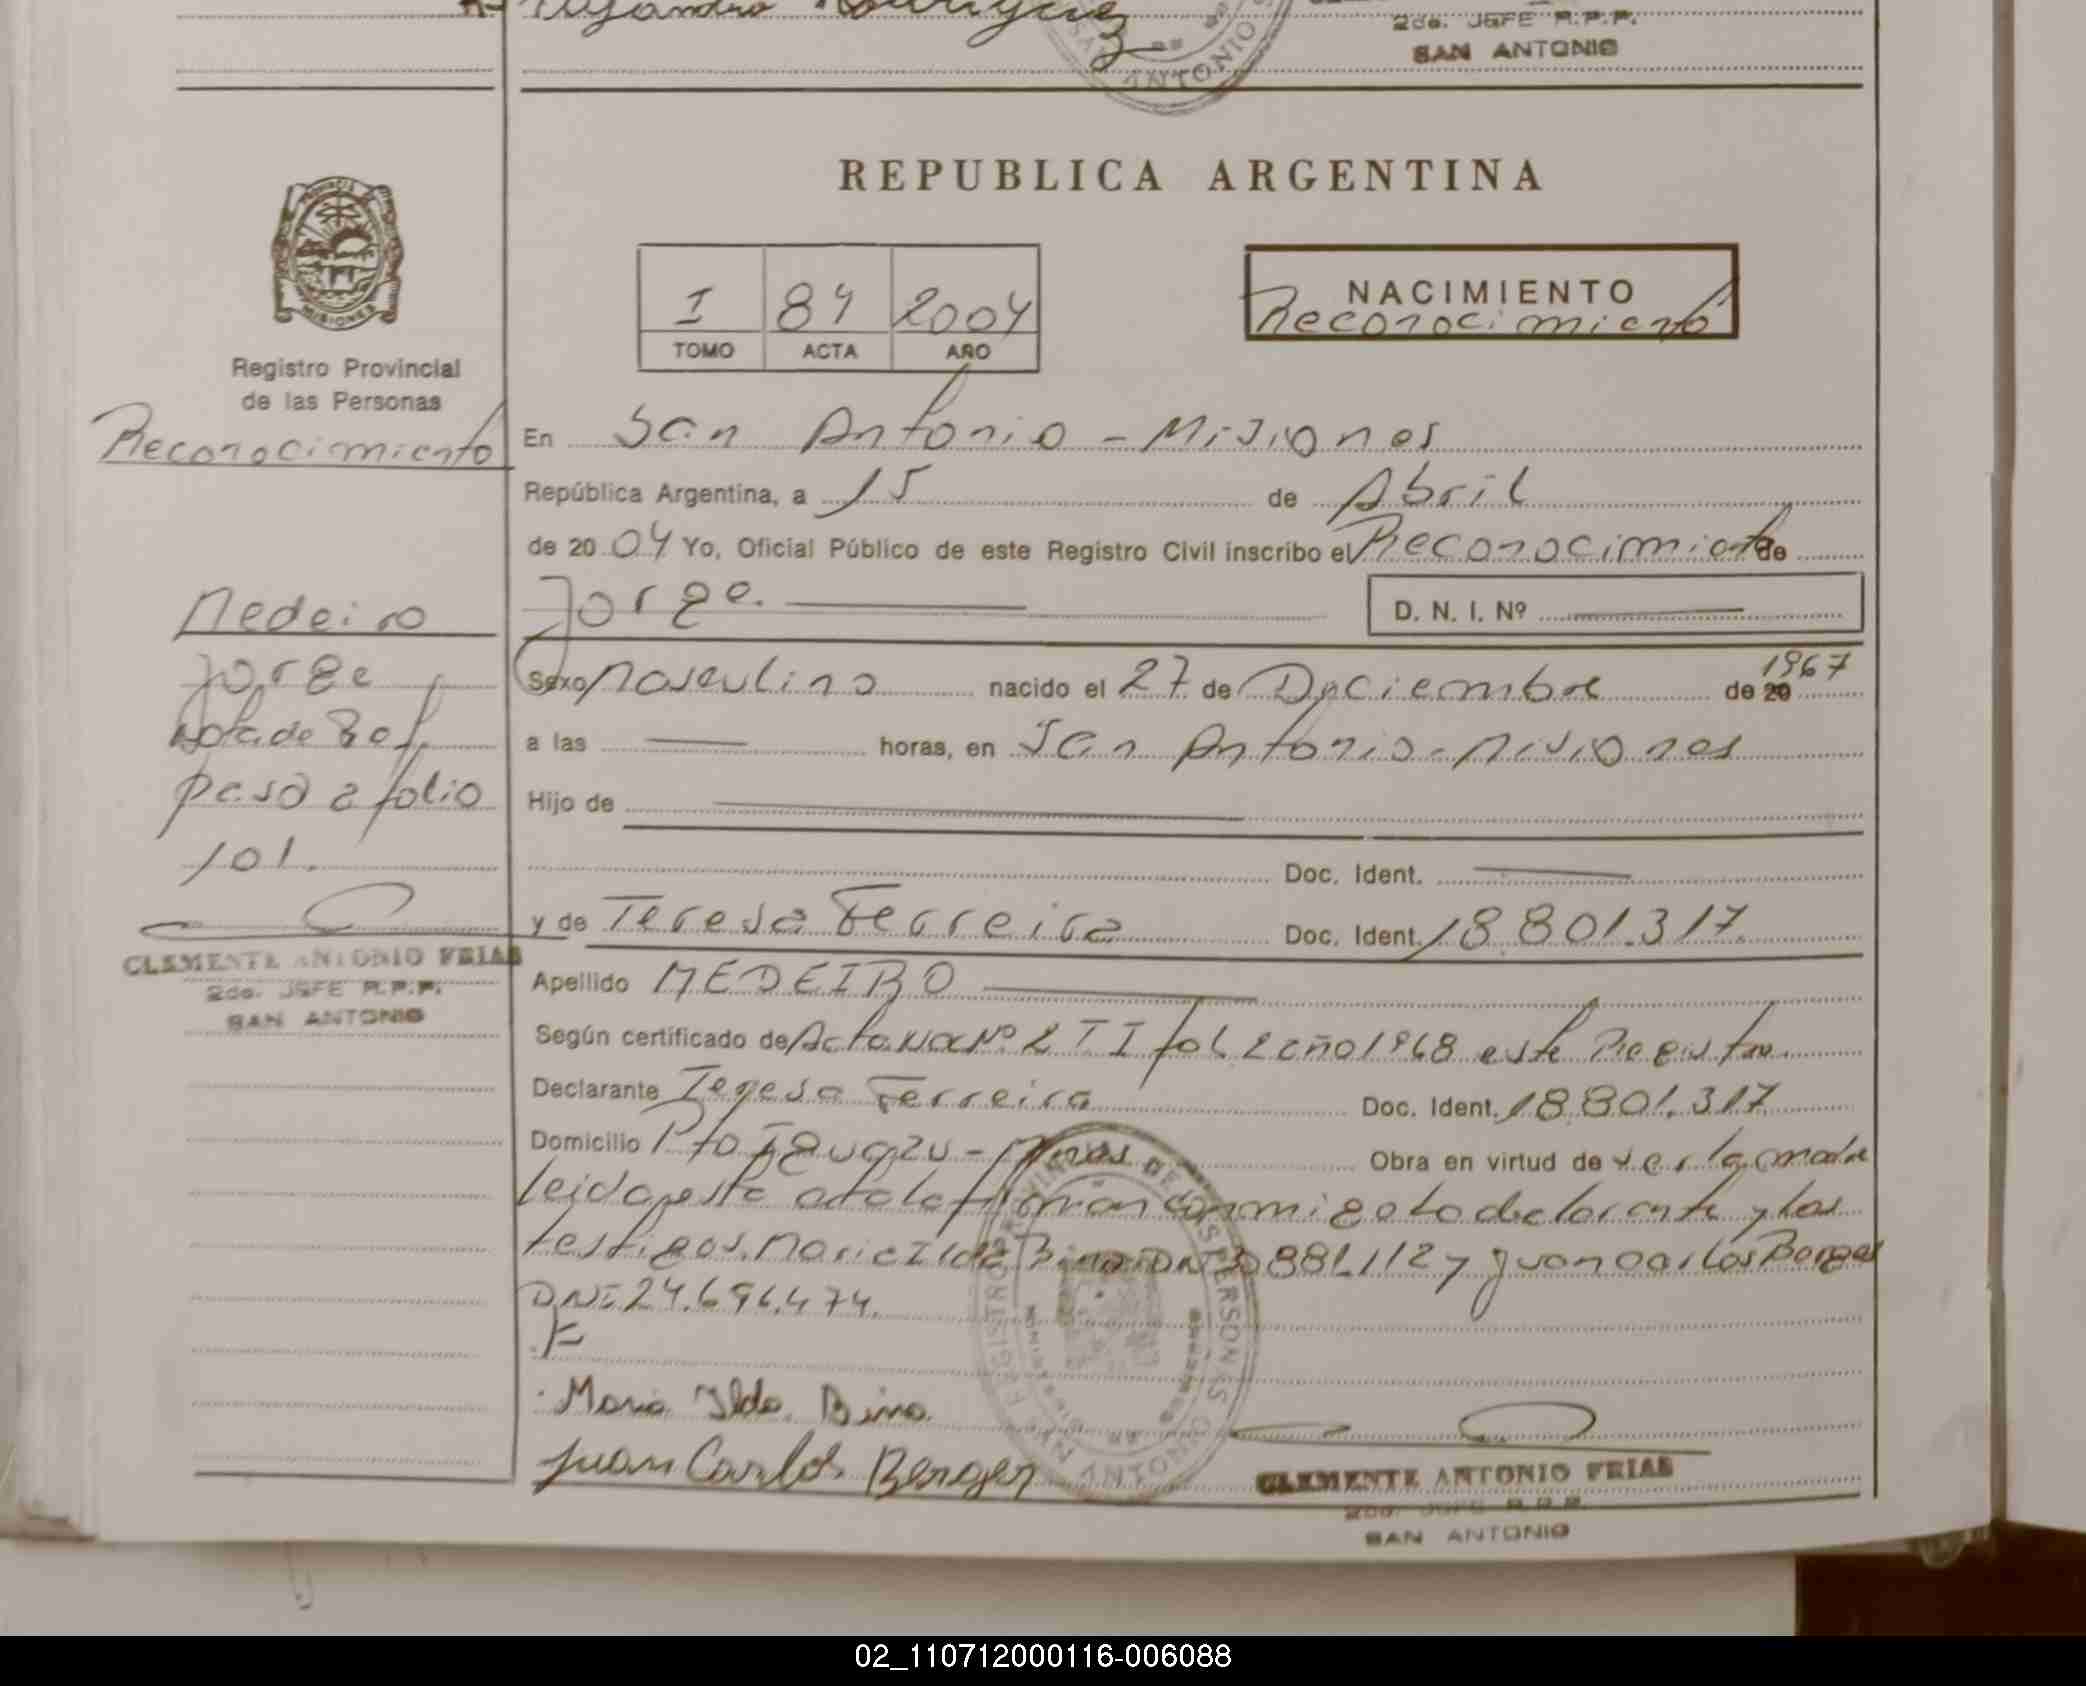 Alejandro Rodriguez
SAN ANTONIO
2do. JEFE R.P.P.
SAN ANTONIO
REPUBLICA ARGENTINA
PROVINCIA
MISIONES
Registro Provincial
de las Personas
I 84 2004
TOMO ACTA AÑO
NACIMIENTO
Reconocimiento
Reconocimiento
En San Antonio - Misiones
República Argentina, a 15 de Abril
de 20 04 Yo, Oficial Público de este Registro Civil inscribo el Reconocimiento de
Jorge. D. N. I. Nº
Medeiro
Jorge
Nota de Ref.
pasa a folio
101.
CLEMENTE ANTONIO FRIAS
2do. JEFE R.P.P.
SAN ANTONIO
Sexo Masculino nacido el 27 de Diciembre de 20 1967
a las horas, en San Antonio - Misiones
Hijo de
Doc. Ident.
y de Teresa Ferreira Doc. Ident. 18.801.317.
Apellido MEDEIRO
Según certificado de Acta Nac Nº 2 T I fol 2 año 1968 este Registro
Declarante Teresa Ferreira Doc. Ident. 18.801.317
Domicilio Pto Iguazu - Mnes Obra en virtud de ser la madre
leida este acta la firman conmigo la declarante y los
testigos Maria Ilda Bino DNI y Juan Carlos Berger
DNI 24.696.474.
Maria Ilda Bino.
Juan Carlos Berger
CLEMENTE ANTONIO FRIAS
2do. JEFE R.P.P.
SAN ANTONIO
02_110712000116-006088